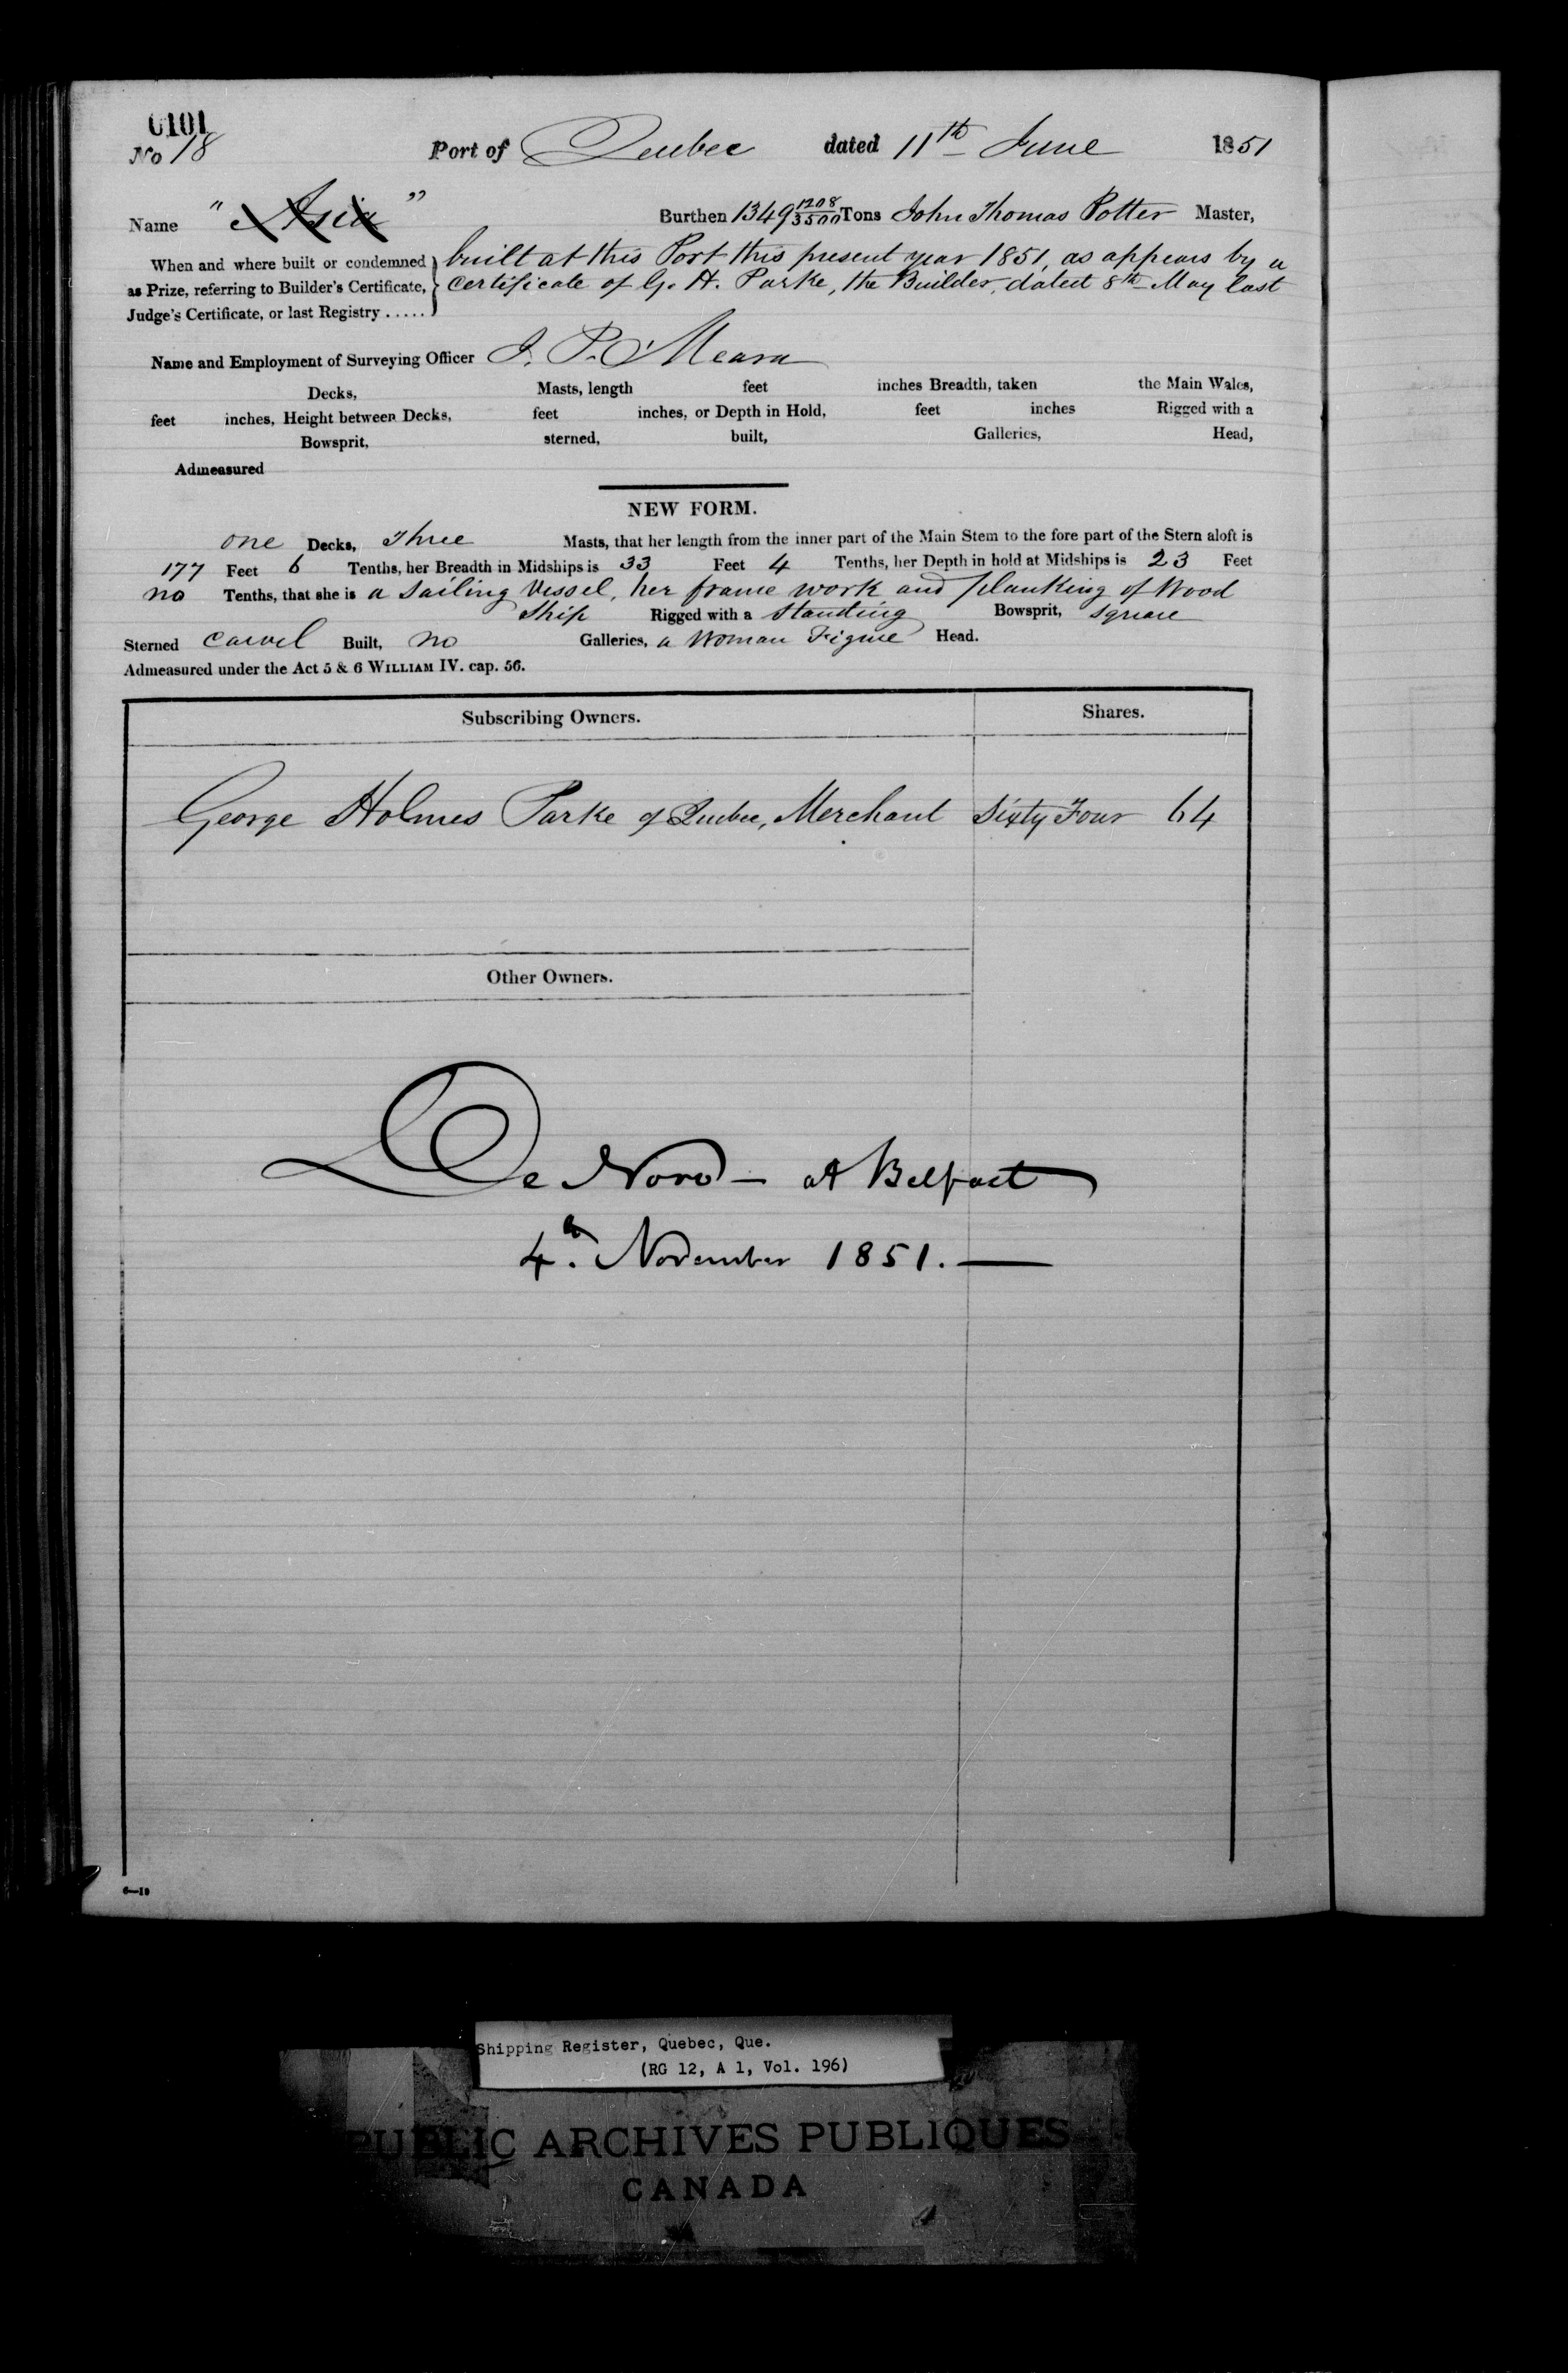 0101
No 18 Port of Quebec dated 11th June 1851
Name "Asia" Burthen 1349 1208/3500 Tons John Thomas Potter Master,
When and where built or condemned as Prize, referring to Builder's Certificate, Judge's Certificate, or last Registry . . . . .
built at this Port this present year 1851, as appears by a
certificate of G. H. Parke, the Builder, dated 8th May last
Name and Employment of Surveying Officer J. P. O'Meara
Decks, Masts, length feet inches Breadth, taken the Main Wales,
feet inches, Height between Decks, feet inches, or Depth in Hold, feet inches Rigged with a
Bowsprit, sterned, built, Galleries, Head,
Admeasured
NEW FORM.
one Decks, Three Masts, that her length from the inner part of the Main Stem to the fore part of the Stern aloft is
177 Feet 6 Tenths, her Breadth in Midships is 33 Feet 4 Tenths, her Depth in hold at Midships is 23 Feet
no Tenths, that she is a sailing Vessel, her frame work and planking of Wood
Ship Rigged with a standing Bowsprit, square
Sterned carvel Built, no Galleries, a Woman Figure Head.
Admeasured under the Act 5 & 6 WILLIAM IV. cap. 56.
Subscribing Owners. Shares.
George Holmes Parke of Quebec, Merchant Sixty Four 64
Other Owners.
De Novo — at Belfast
4th November 1851. —
6—10
Shipping Register, Quebec, Que.
(RG 12, A 1, Vol. 196)
PUBLIC ARCHIVES PUBLIQUES
CANADA